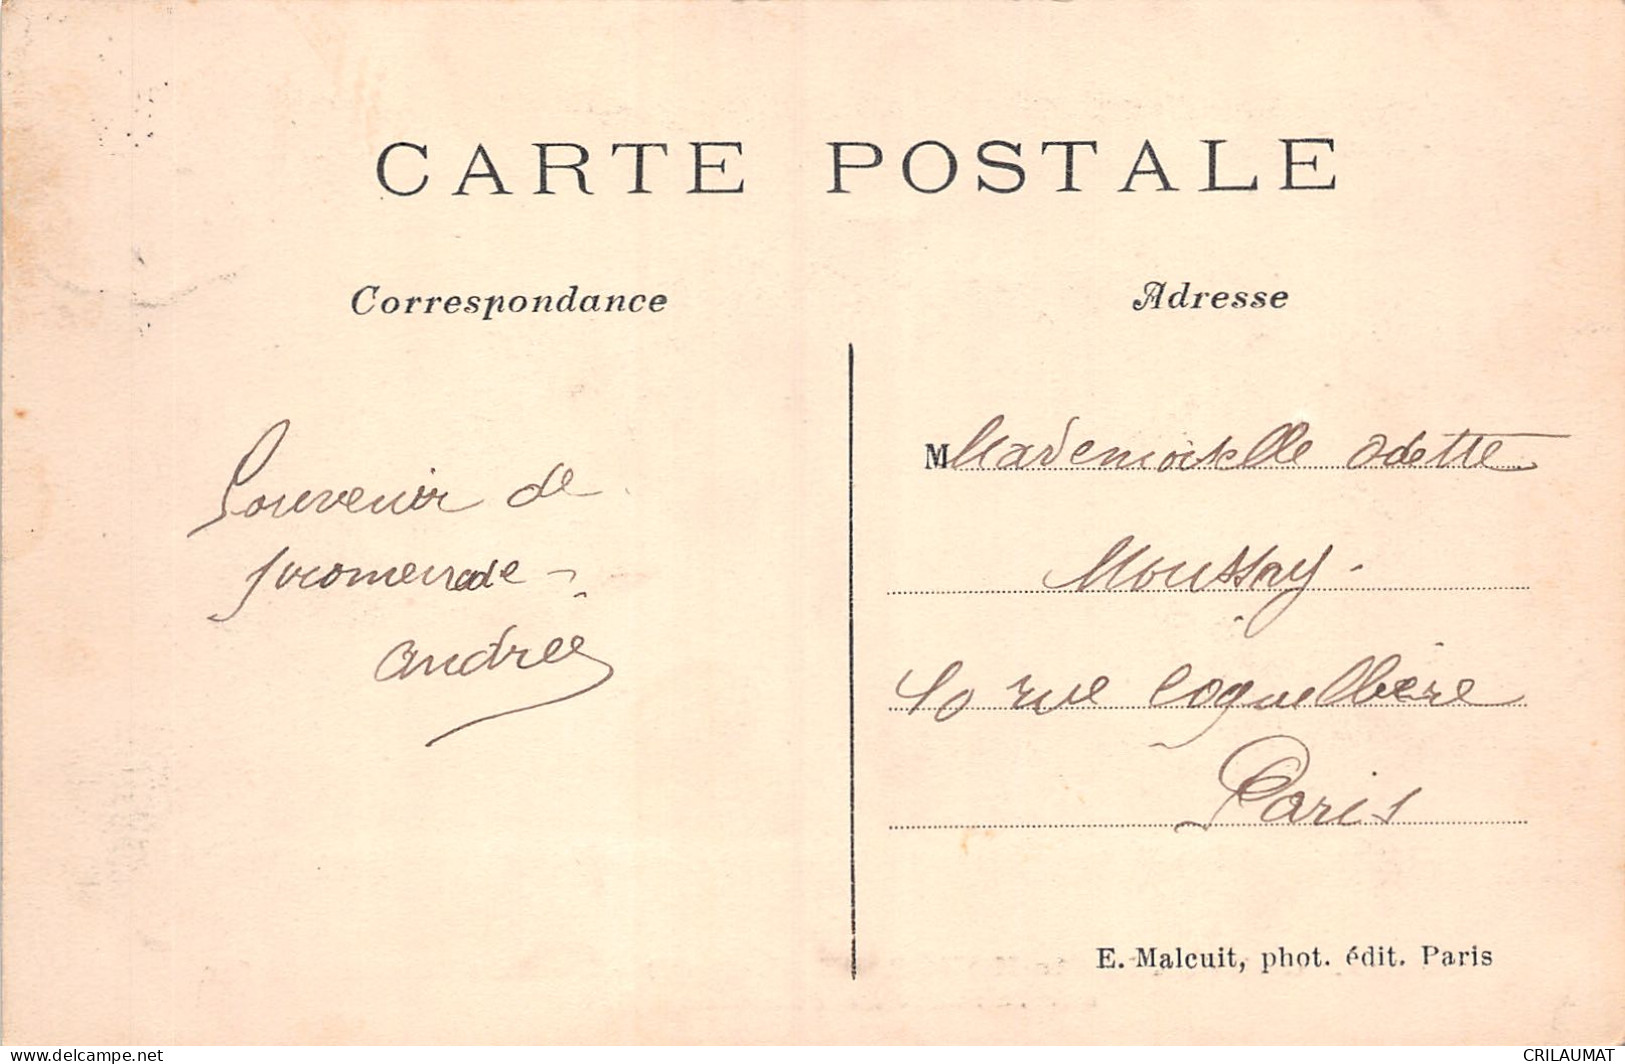 CARTE POSTALE
Correspondance
Adresse
Souvenir de
promenade -
Andrée
M Mademoiselle Odette
Moussay -
10 rue Coquillière
Paris
E. Malcuit, phot. édit. Paris
www.delcampe.net
CRILAUMAT